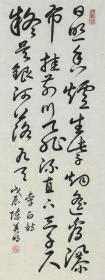 日照香爐生紫烟遙看瀑
布挂前川飛流直下三千尺
疑是銀河落九天
李白詩
戊辰陳